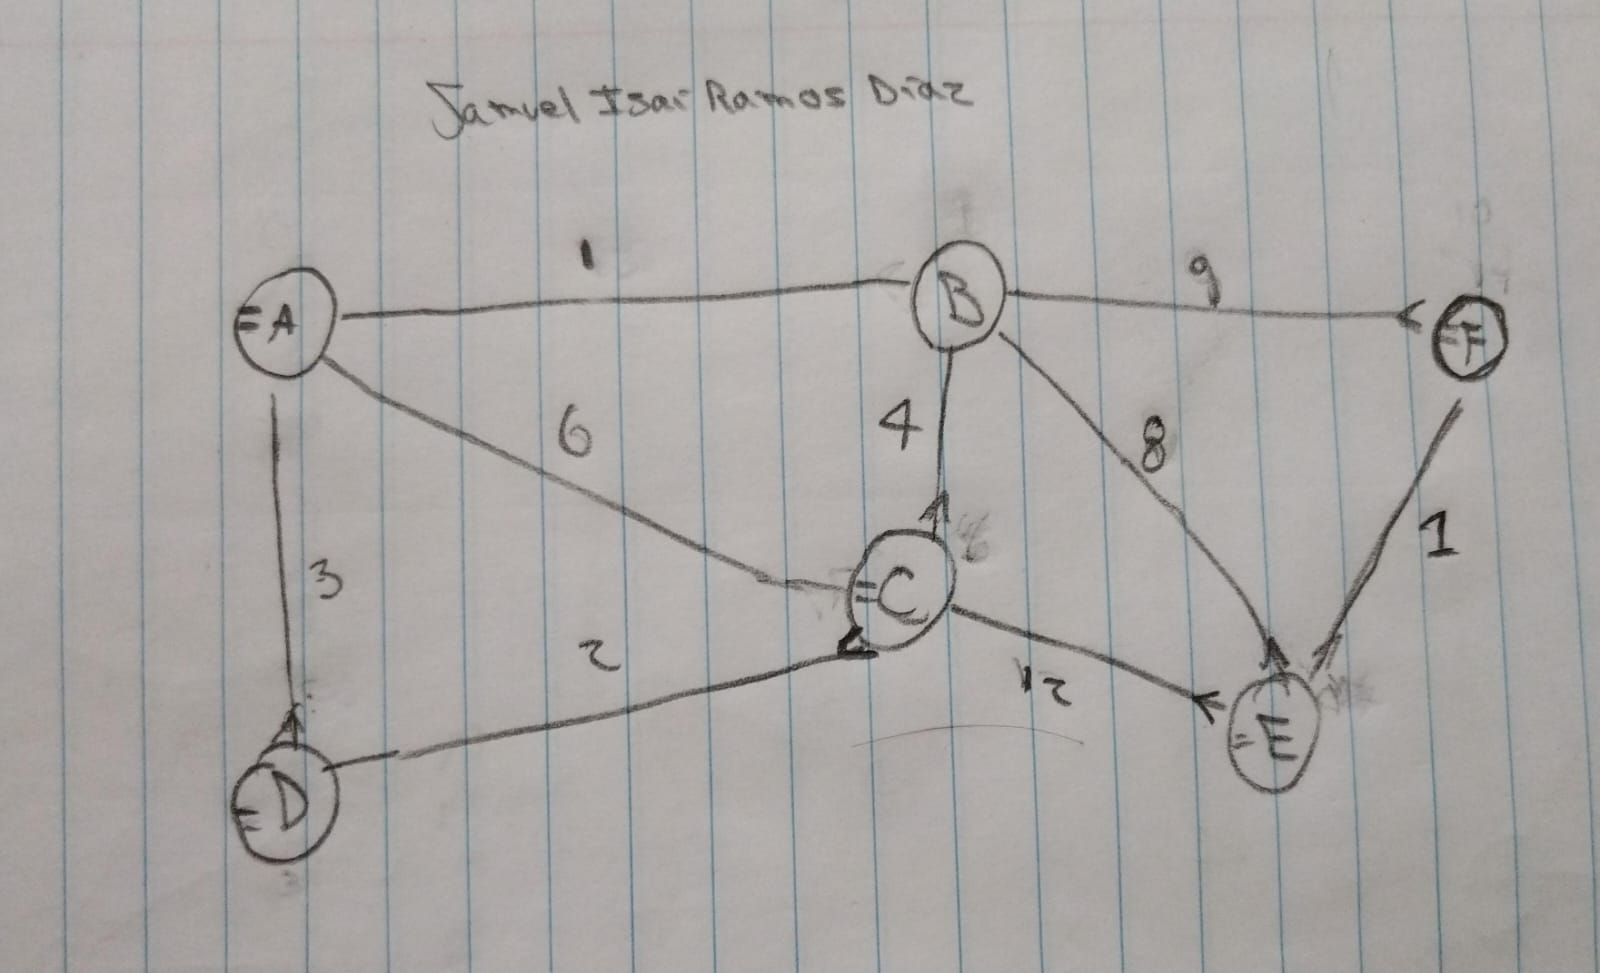 Samuel Isai Ramos Diaz
1
9
=A
B
=F
6
4
8
1
3
=C
2
12
=E
=D